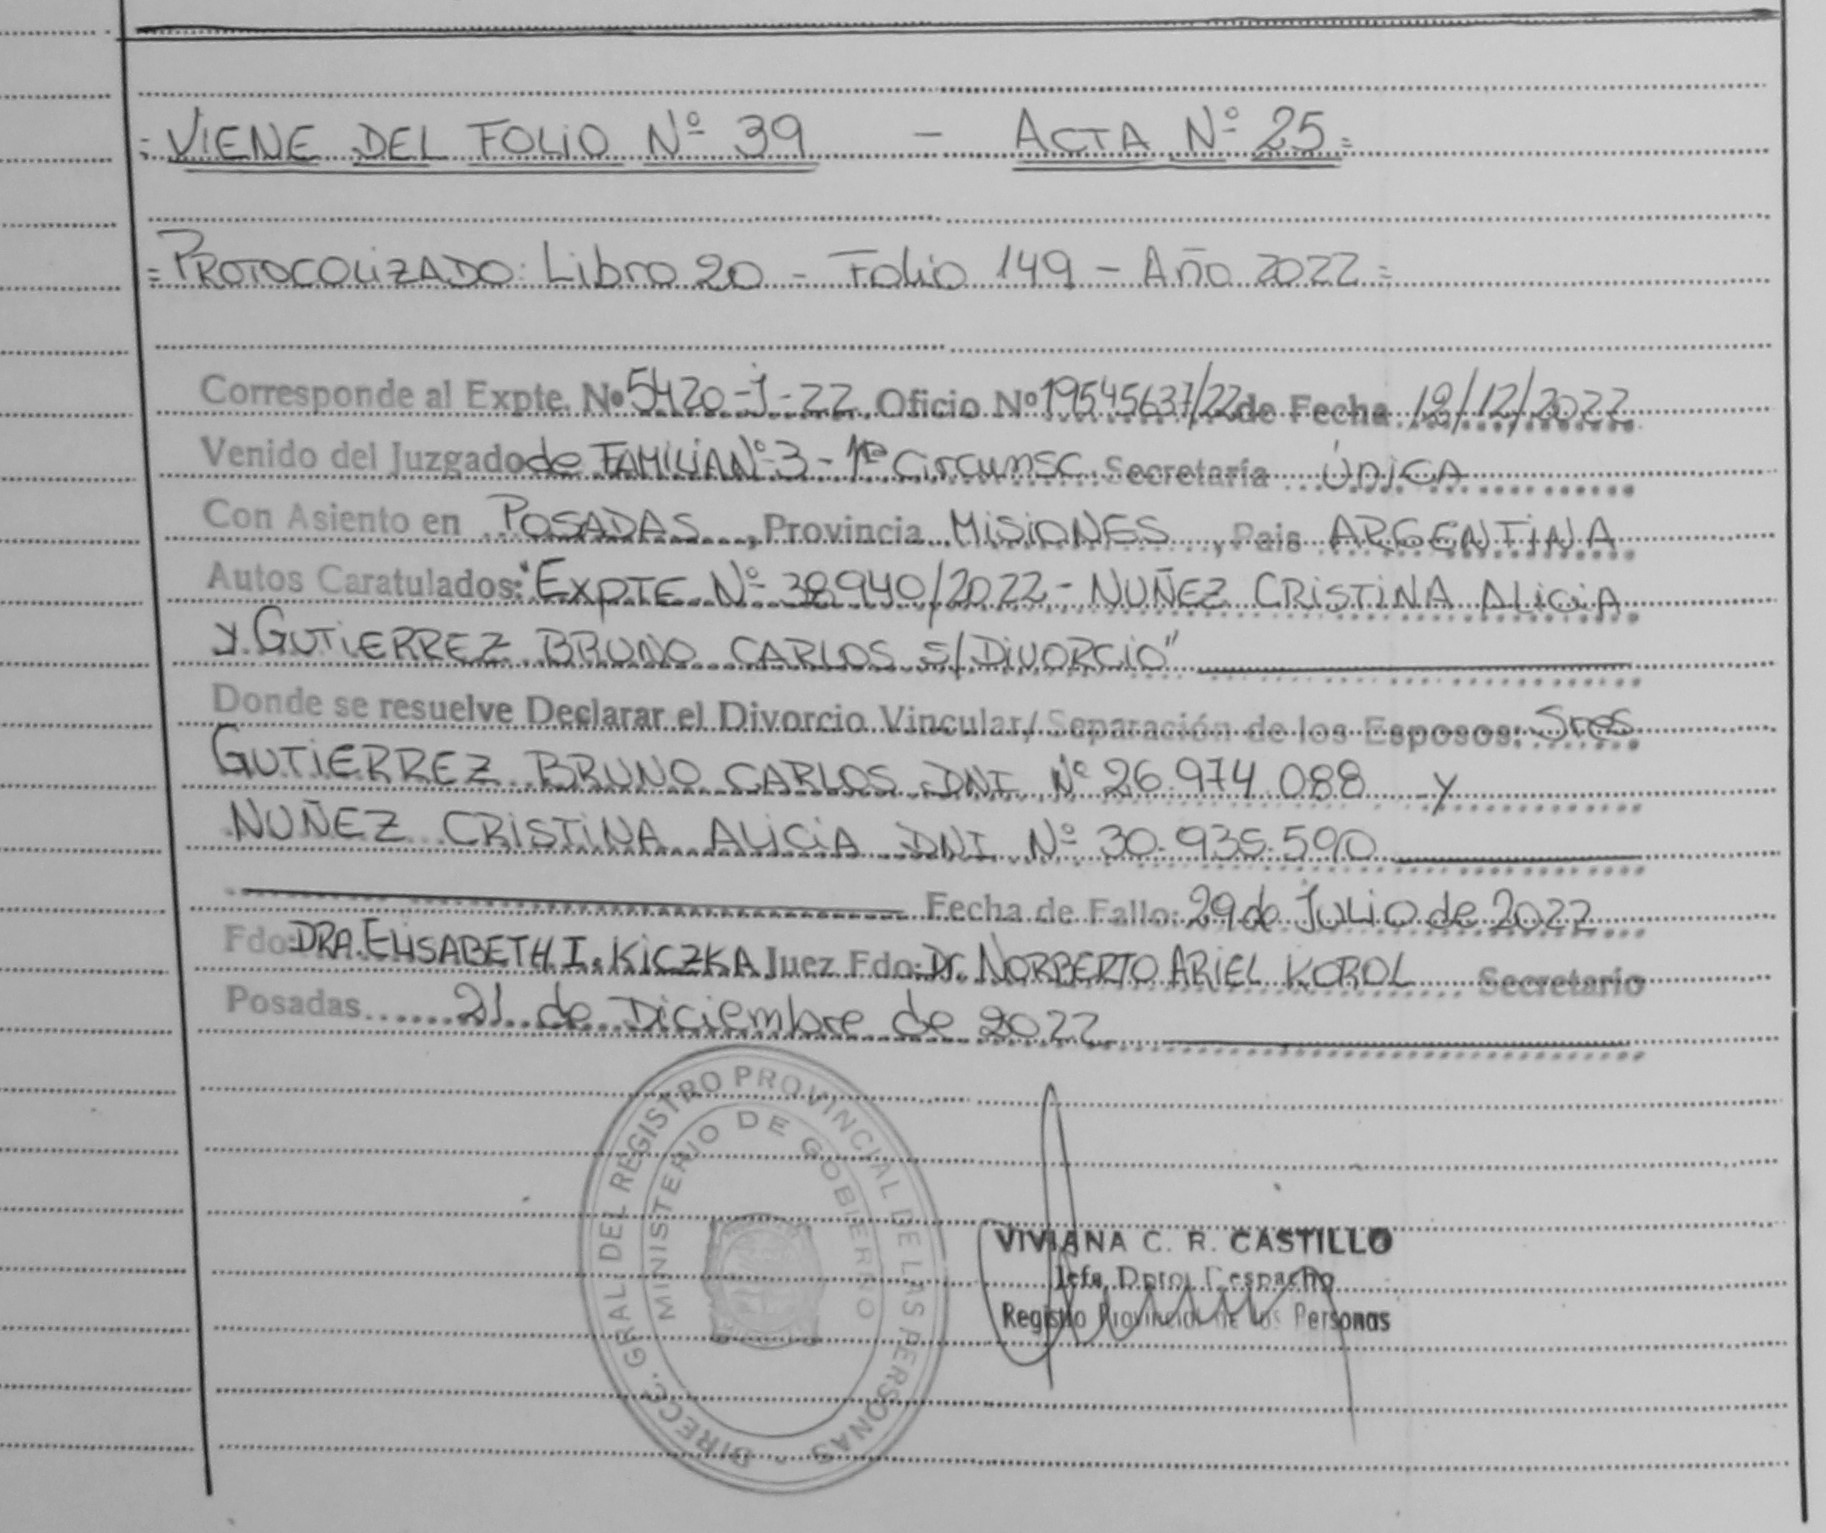 = VIENE DEL FOLIO Nº 39 - ACTA Nº 25 =
= PROTOCOLIZADO: Libro 20 - Folio 149 - Año 2022 =
Corresponde al Expte. Nº 5420-J-22 Oficio Nº 19545637/22 de Fecha 12/12/2022
Venido del Juzgado de FAMILIA Nº 3 - 1ra Circunsc. Secretaría ÚNICA
Con Asiento en POSADAS, Provincia MISIONES, Pais ARGENTINA
Autos Caratulados: "EXPTE Nº 38940/2022 - NUÑEZ CRISTINA ALICIA
Y GUTIERREZ BRUNO CARLOS S/DIVORCIO"
Donde se resuelve Declarar el Divorcio Vincular/Separación de los Esposos: Sres
GUTIERREZ BRUNO CARLOS DNI Nº 26.974.088 y
NUÑEZ CRISTINA ALICIA DNI Nº 30.935.590
Fecha de Fallo: 29 de Julio de 2022
Fdo: DRA. ELISABETH I. KICZKA Juez Fdo: Dr. NORBERTO ARIEL KOROL Secretario
Posadas 21 de Diciembre de 2022
DIRECC. GRAL DEL REGISTRO PROVINCIAL DE LAS PERSONAS -
MINISTERIO DE GOBIERNO
VIVIANA C. R. CASTILLO
Jefa Dpto. Despacho
Registro Provincial de las Personas